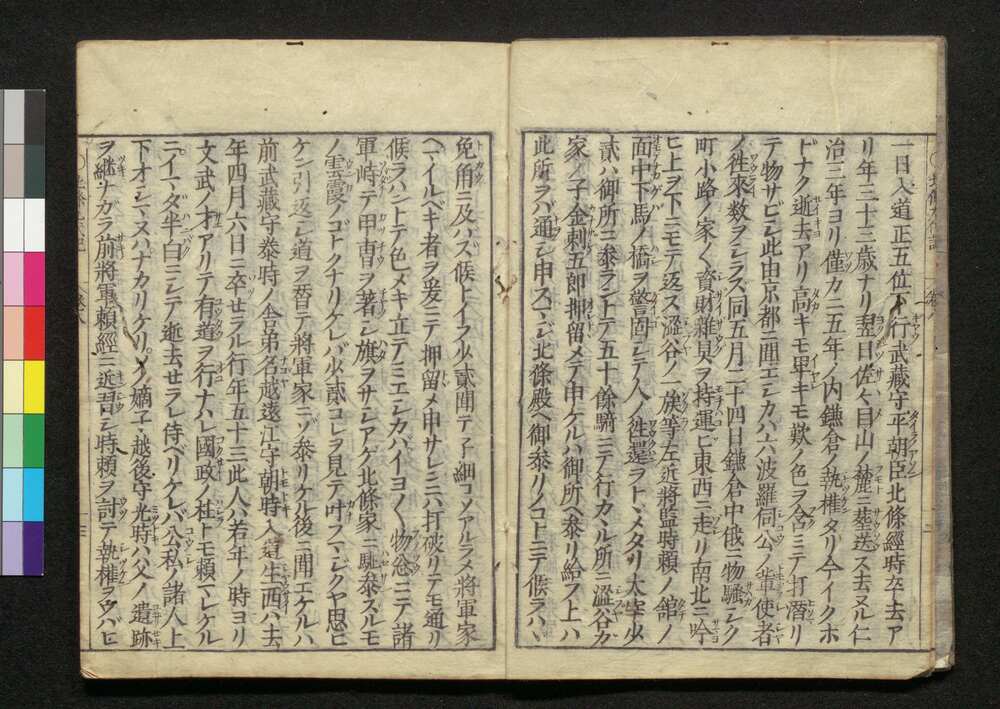 一日入道正五位下行武藏守平朝臣北條經時卒去ア
リ年三十三歳ナリ翌日佐々目山ノ麓ニ葬送ス去ヌル仁
治三年ヨリ僅カニ五年ノ内鎌倉ノ執權タリ今イクホ
ドナク逝去アリ高キモ卑キモ歎ノ色ヲ含ミテ打潛リ
テ物サビシ此由京都ニ聞エシカハ六波羅伺公ノ輩使者
ノ徃來数ヲシラス同五月二十四日鎌倉中俄ニ物騒シク
町小路ノ家々資財雜具ヲ持運ビ東西ニ走リ南北ニ吟
ヒ上ヲ下ニモテ返ス澁谷ノ一族等左近將監時頼ノ舘ノ
面中下馬ノ橋ヲ警固シテ人ノ徃還ヲトヾメタリ太宰少
貳ハ御所ニ泰ラントテ五十餘騎ニテ行カヽル所ニ澁谷カ
家ノ子金刺五郎押留メテ申ケルハ御所ヘ泰リ給フ上ハ
此所ヲハ通シ申スマシ北條殿ヘ御泰リノコトニテ候ラハヽ
免角ニ及ハズ候トイフ少貳聞テ子細コソアルラメ將軍家
ヘマイルベキ者ヲ爰ニテ押留メ申サレンニハ打破リテモ通リ
候ラハントテ色メキ立テミエシカバイヨ〱物忩ニテ諸
軍峙テ甲冑ヲ著シ旗ヲサシアゲ北條家ニ馳泰ズルモ
ノ雲霞ノゴトクナリケレバ少貳コレヲ見テ叶スマシクヤ思ヒ
ケン引返シ道ヲ替テ將軍家ニゾ泰リケル後ニ聞エケルハ
前武藏守泰時ノ舎弟名越遠江守朝時入道生西ハ去
年四月六日ニ卒せラル行年五十三此人ハ若年ノ時ヨリ
文武ノ才アリテ有道ヲ行ナハレ國政ノ柱トモ頼マレケル
ニイマダ半白ニシテ逝去せラレ侍ベリケレバ公私ノ諸人上
下オシマヌハナカリケリソノ嫡子越後守光時ハ父ノ遺跡
ヲ繼ナカラ前將軍頼經ニ近習シ時頼ヲ討テ執權ヲウバヒ